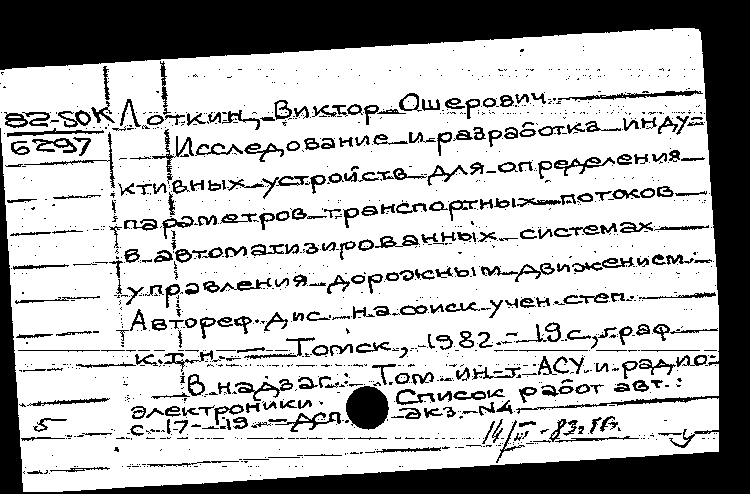 82-80К Лоткин, Виктор Ошерович.
6297
Исследование и разработка инду-
ктивных устройств для определения
параметров транспортных потоков
в автоматизированных системах
управления дорожным движением.
Автореф. дис. на соиск учен. степ.
к.т.н. — Томск, 1982. – 19 с, граф.
В надзаг.: Том. ин-т АСУ и радио-
электроники. Список работ авт.:
с. 17–19. – ДСП. экз. №4
5
14/III-83г.